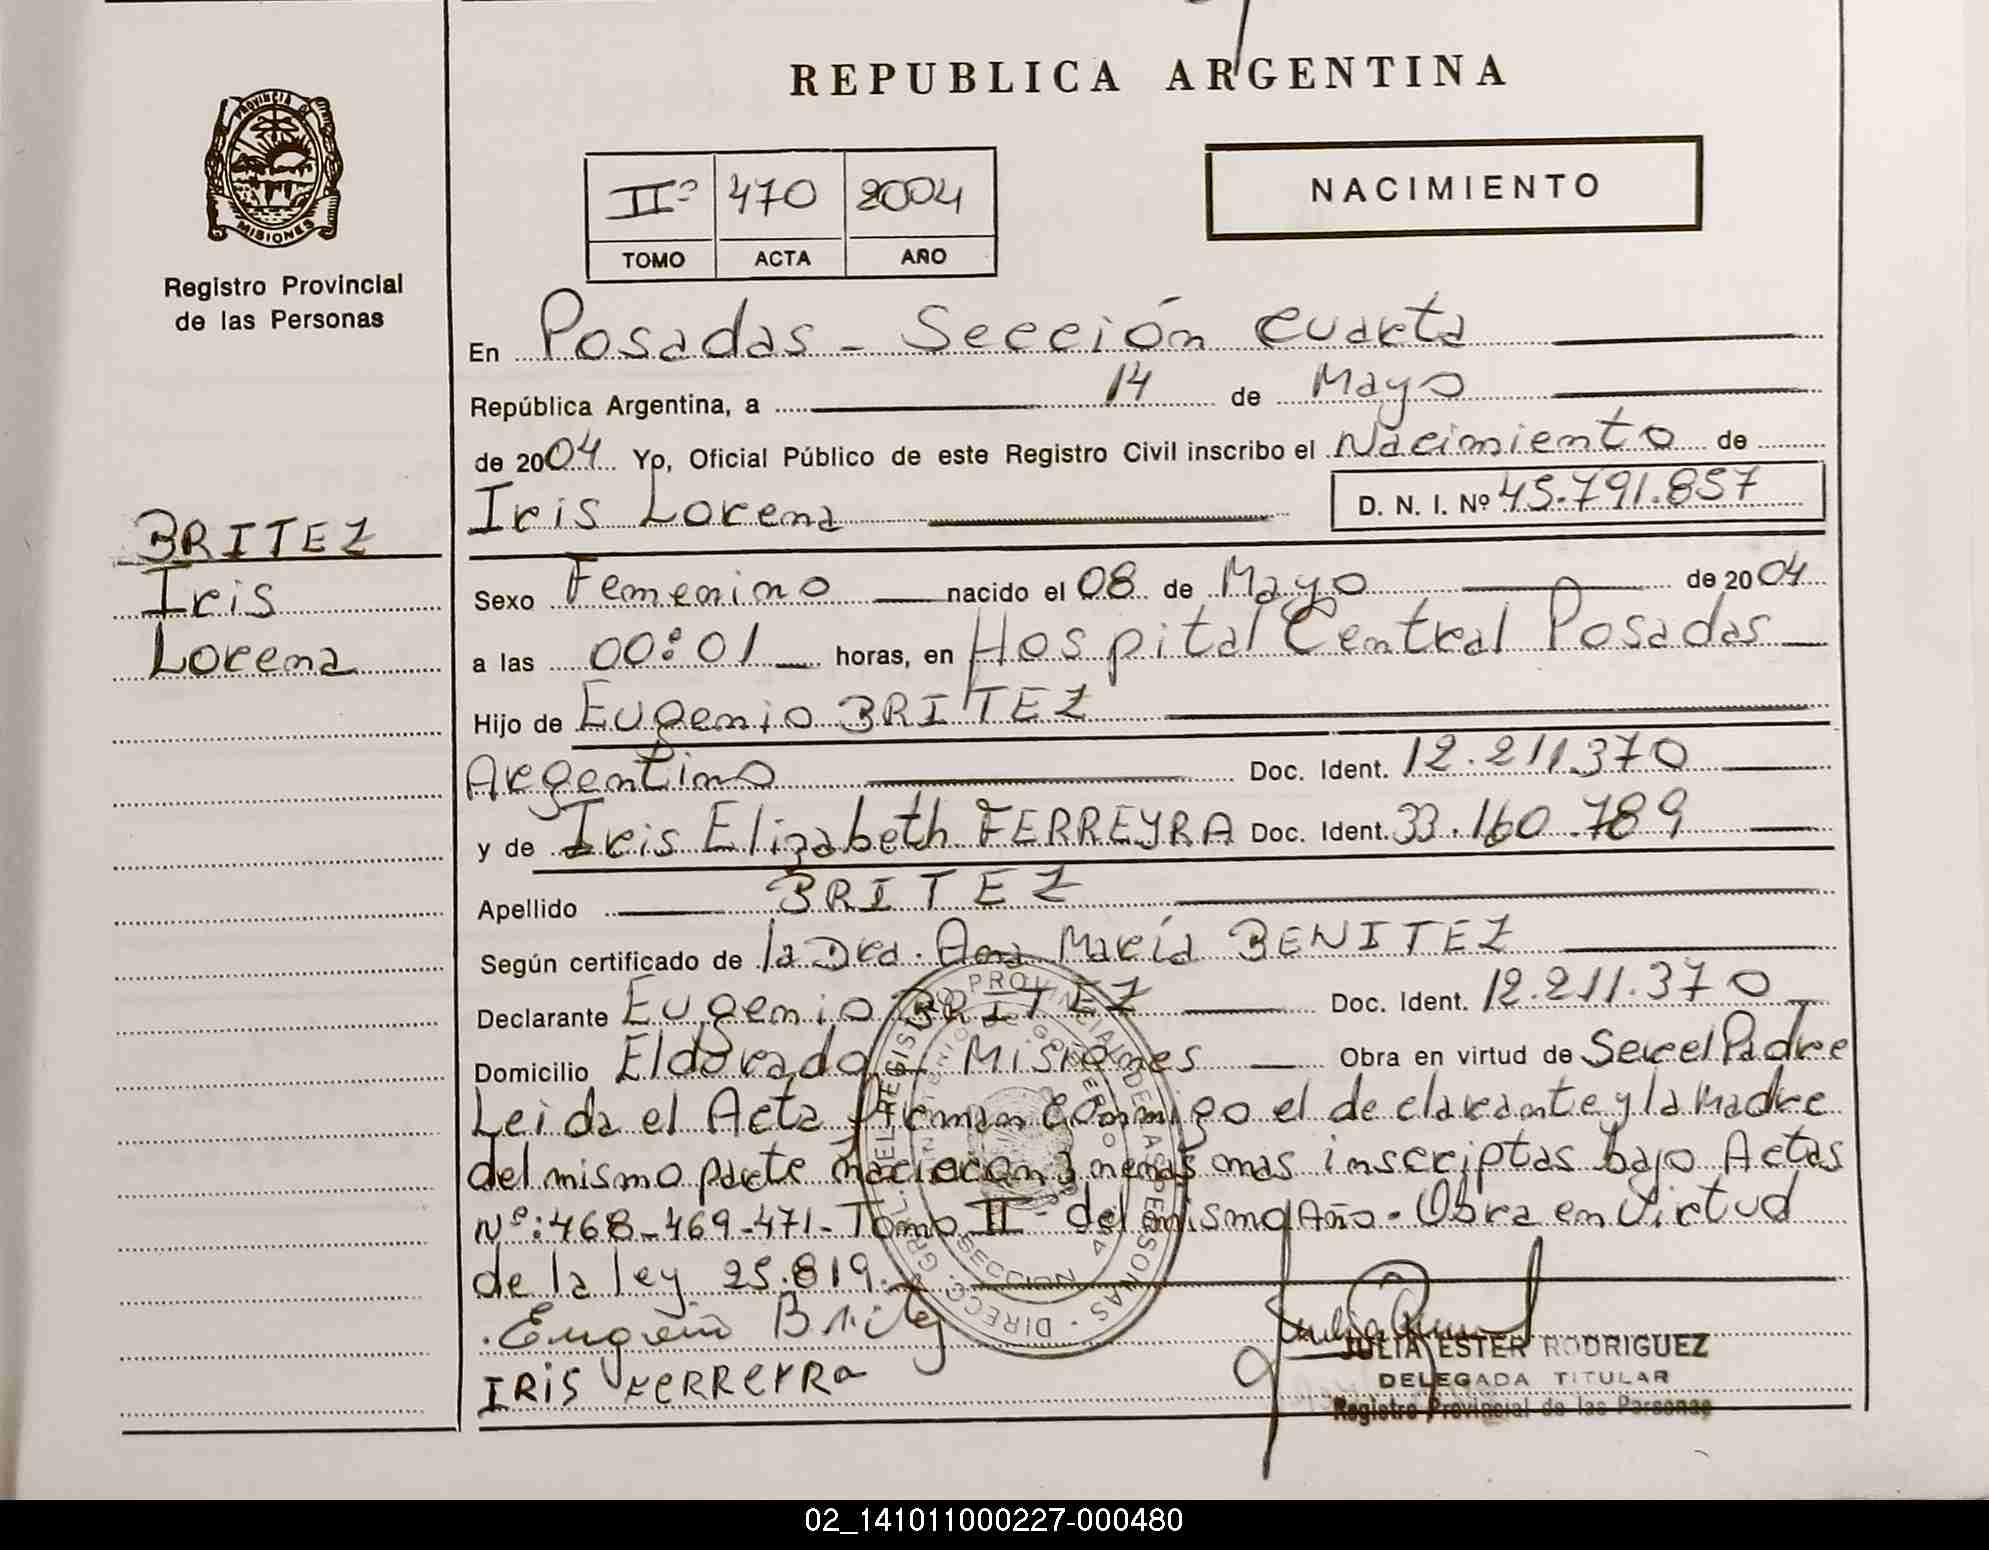 REPUBLICA ARGENTINA
PROVINCIA DE
MISIONES
Registro Provincial
de las Personas
IIº 470 2004
TOMO ACTA AÑO
NACIMIENTO
En Posadas - Sección Cuarta
República Argentina, a 14 de Mayo
de 2004 Yo, Oficial Público de este Registro Civil inscribo el Nacimiento de
Iris Lorena D. N. I. Nº 45.791.857
BRITEZ
Iris
Lorena
Sexo Femenino nacido el 08 de Mayo de 2004
a las 00:01 horas, en Hospital Central Posadas
Hijo de Eugenio BRITEZ
Argentino Doc. Ident. 12.211.370
y de Iris Elizabeth FERREYRA Doc. Ident. 33.160.789
Apellido BRITEZ
Según certificado de la Dra. Ana María BENITEZ
Declarante Eugenio BRITEZ Doc. Ident. 12.211.370
Domicilio Eldorado - Misiones Obra en virtud de Ser el Padre
Leida el Acta firman conmigo el declarante y la Madre
del mismo parte nacieron 3 nenas mas inscriptas bajo Actas
Nº: 468-469-471- Tomo II- del mismo Año - Obra en Virtud
de la ley 25.819.-
Eugenio Britez
IRIS FERREYRA
JULIA ESTER RODRIGUEZ
DELEGADA TITULAR
Registro Provincial de las Personas
02_141011000227-000480